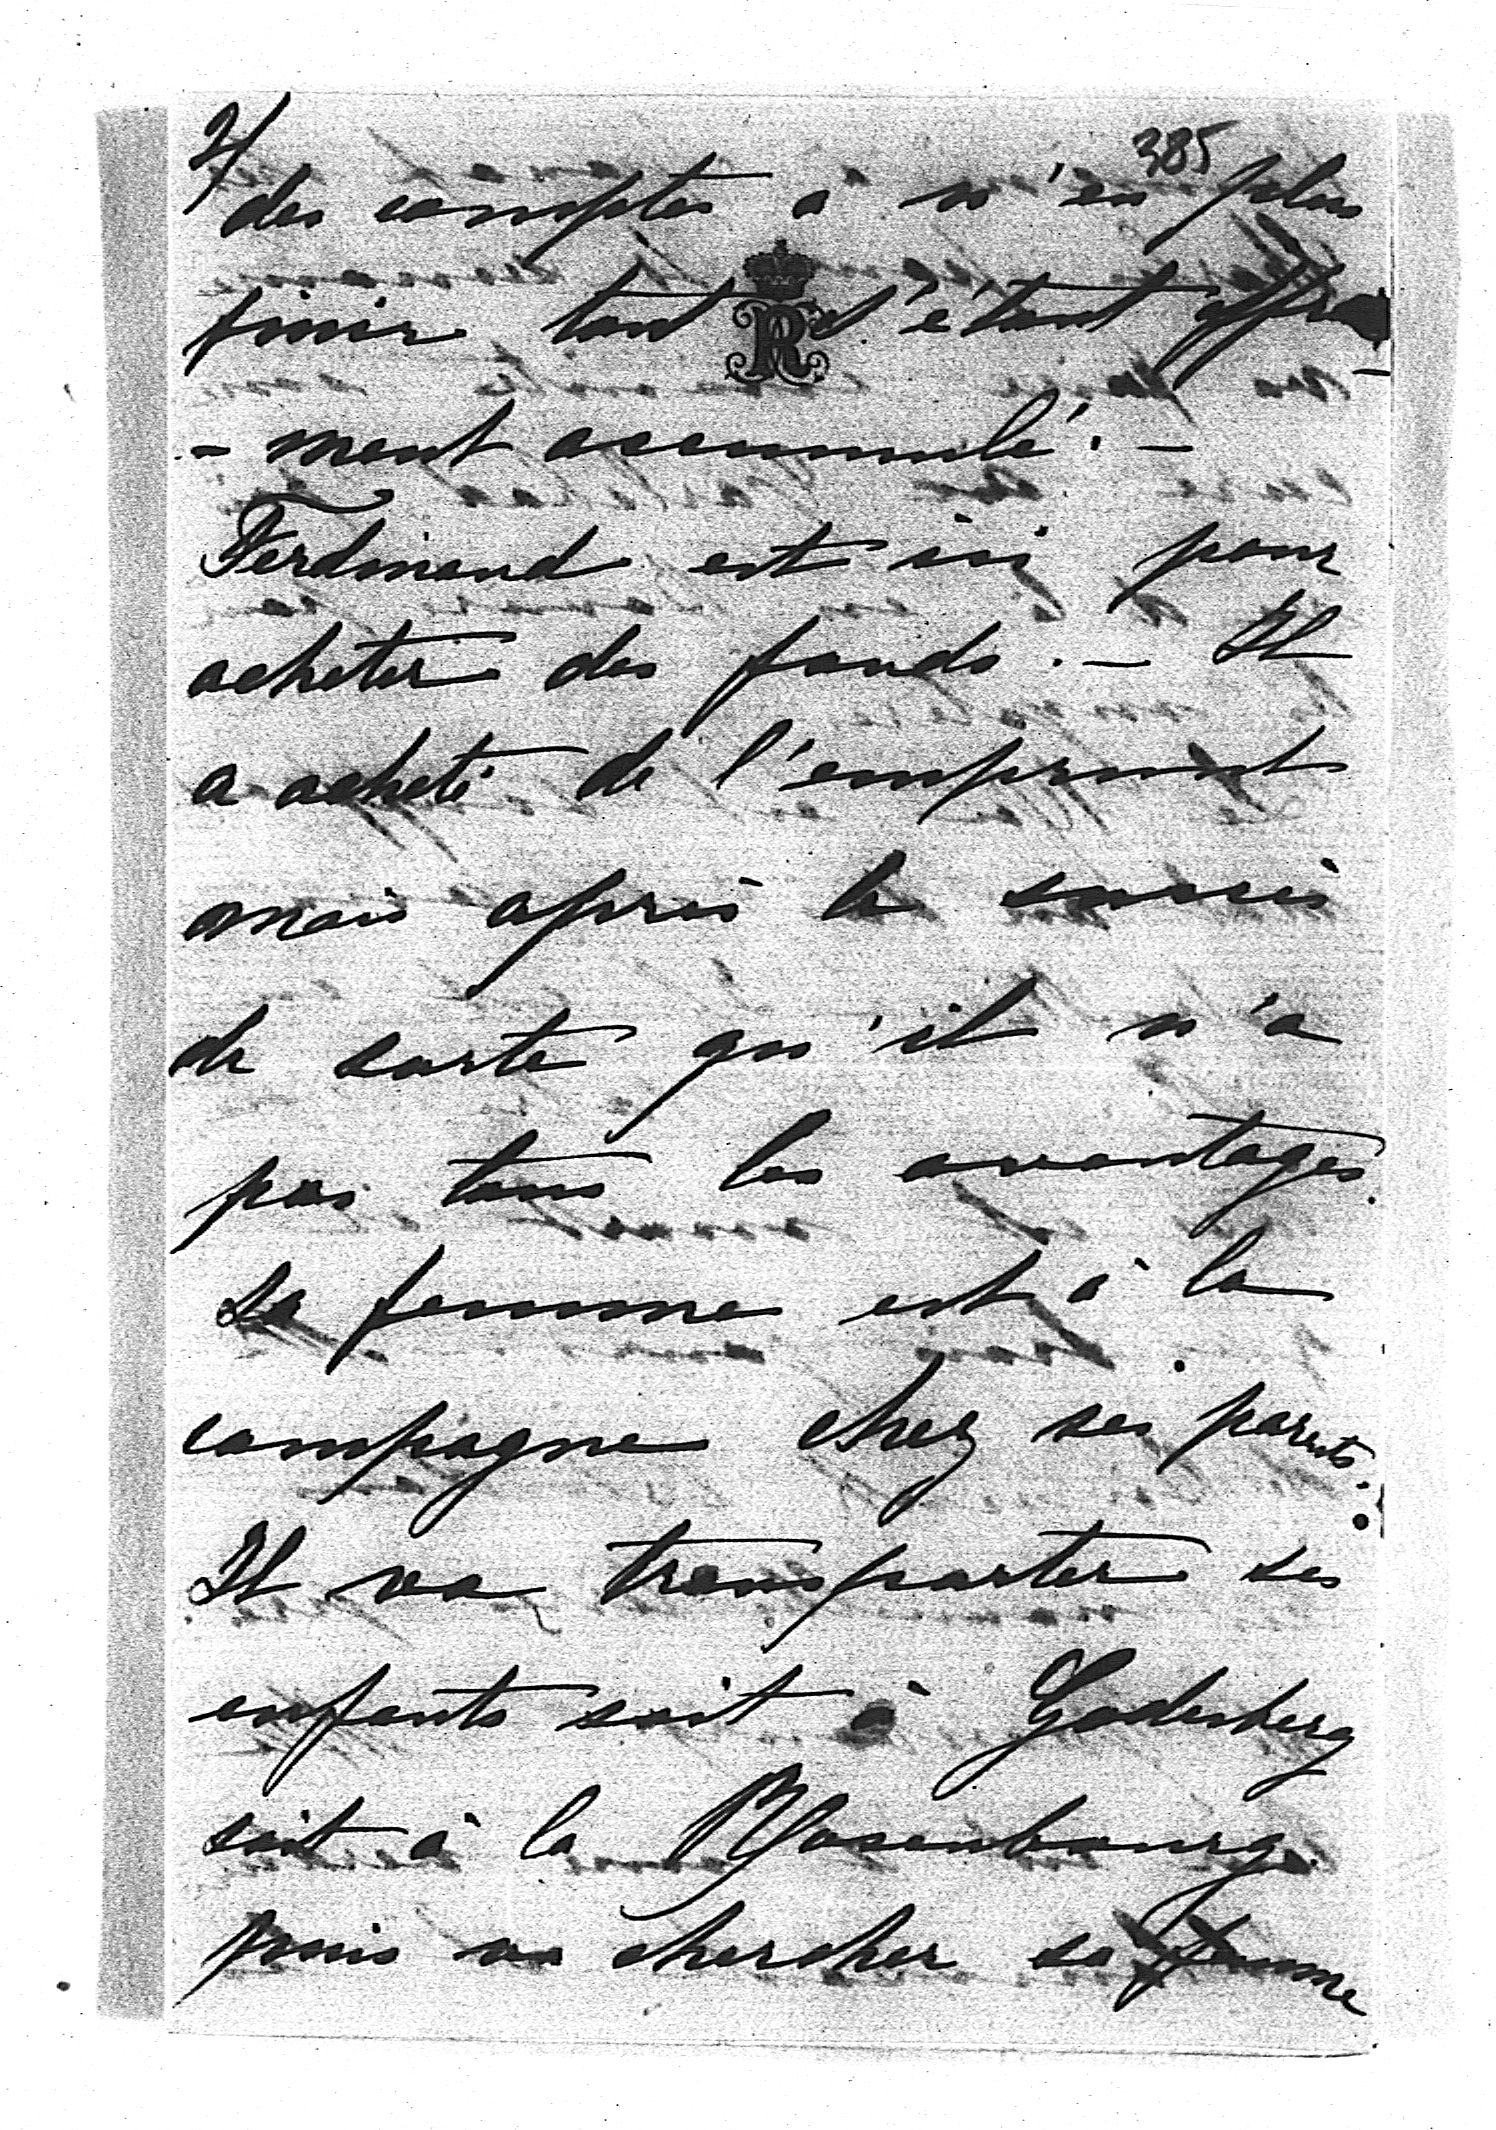 2/
385
des comptes à n'en plus
finir tout s'étant affreu
- ment accumulé. -
Ferdinand est ici pour
acheter des fonds. - Il
a acheté de l'emprunt
mais après le succès
de sorte qu'il n'a
pas tous les avantages.
Sa femme est à la
campagne chez ses parents.
Il va transporter ses
enfants soit à Godesberg
soit à la
puis va chercher sa femme